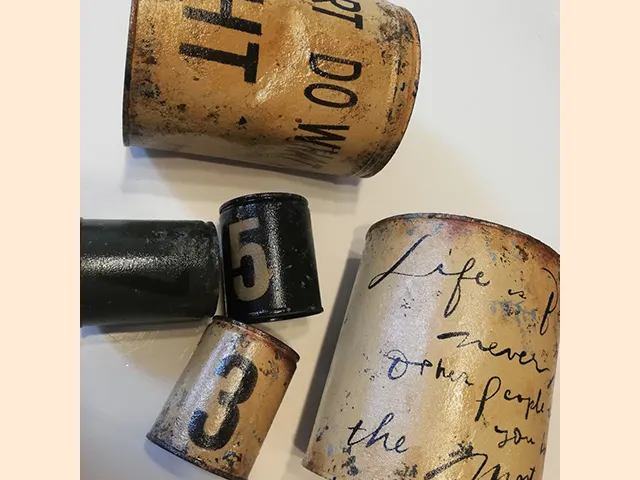 HT
RT DO
5
3
Life is
never
other people
you
the
Most